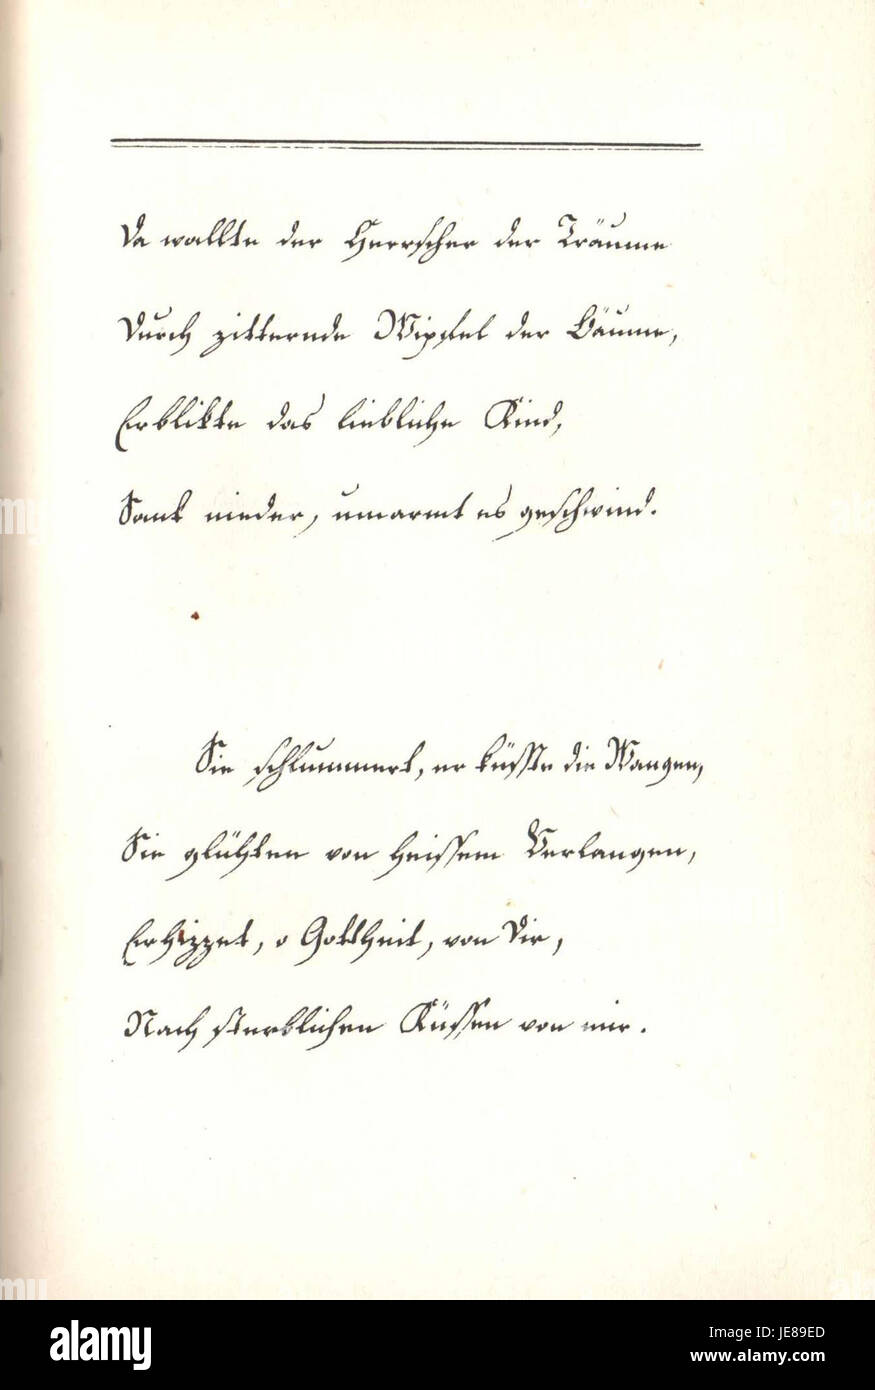 Da wallte der Herrscher der Träume
Durch zitternde Wipfel der Bäume,
Erblikte das liebliche Kind,
Sank nieder, umarmt es geschwind.
Sie schlummert, er küsste die Wangen,
Sie glühten von heissem Verlangen,
Erhizzet, o Gottheit, von Dir,
Nach sterblichen Küssen von mir.
alamy
Image ID: JE89ED
www.alamy.com